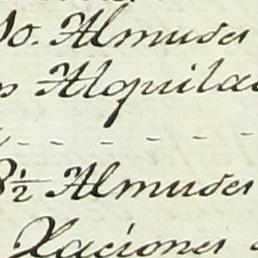 10. Almudes
Alquila
8½ Almudes
Raciones